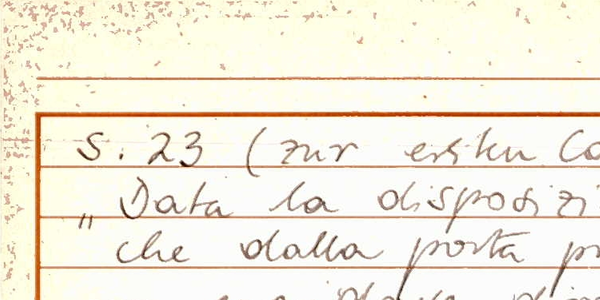 S. 23 (zur ersten Co
„Data la disposizi
che dalla porta pr